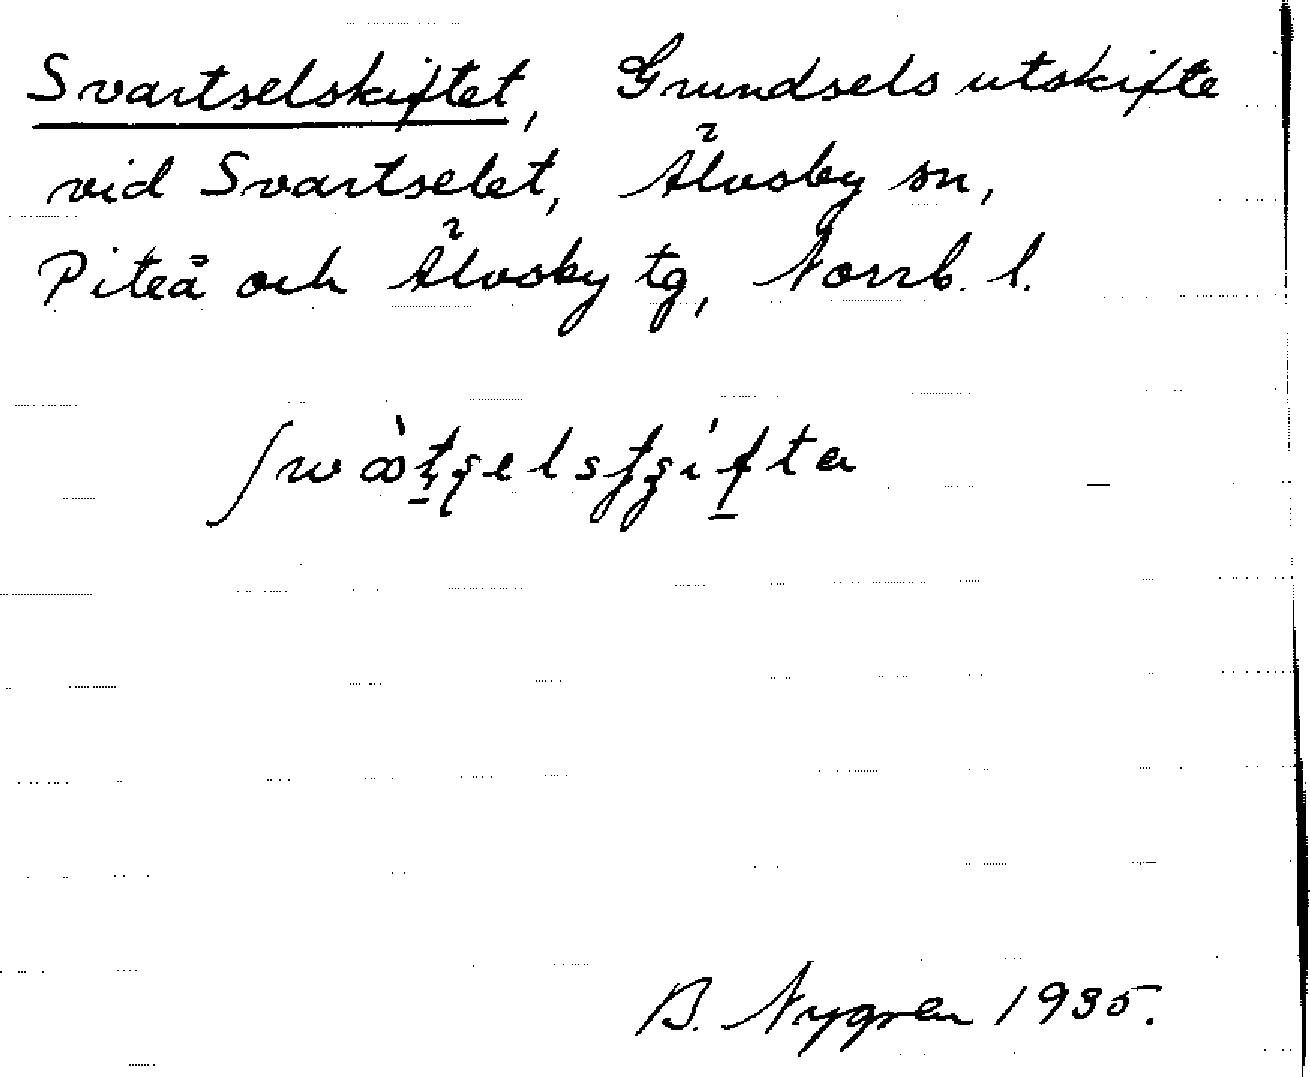 Svartselskiftet, Grundsels utskifte
vid Svartselet, Älvsby sn,
Piteå och Älvsby tg, Norrb. l.
B. Nygren 1935.